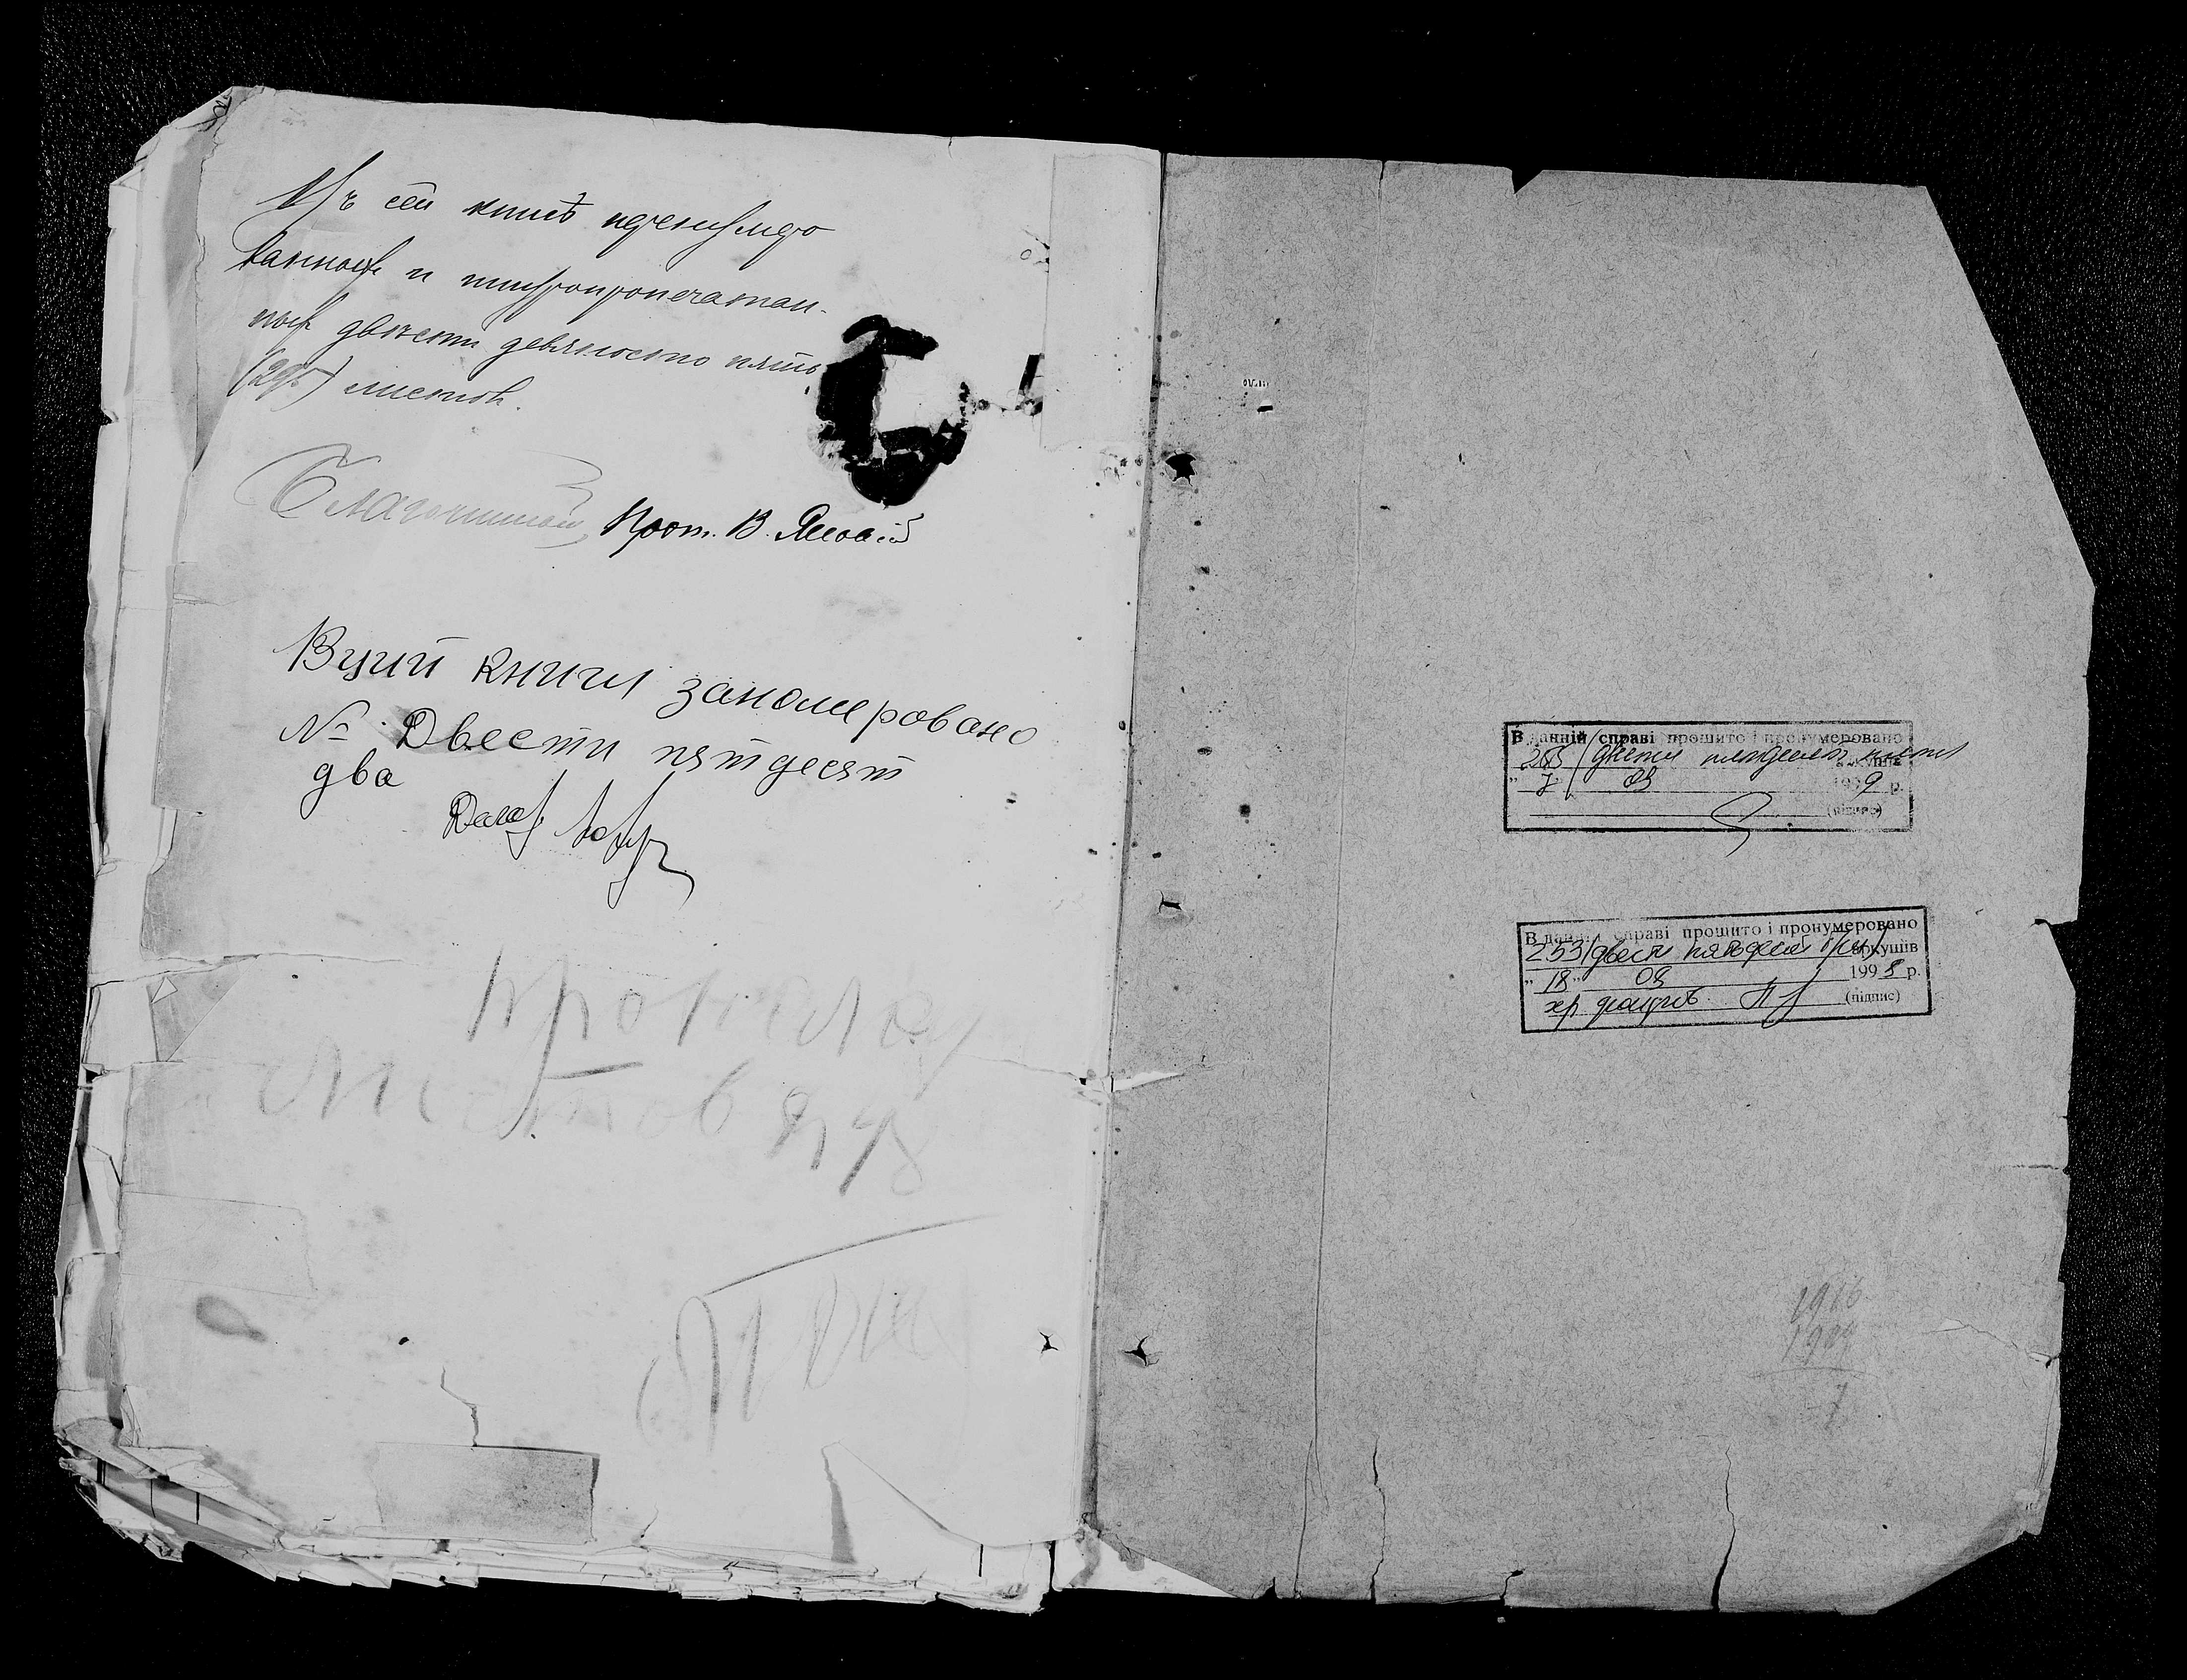 Въ сей книгѣ перенумеро
ванныхъ и шнуропропечатан-
ныхъ двѣсти девяносто пять
(295) листовъ.
Благочинный Прот. В.
Вций книги заномеровано
№ Двести пятдесят
два
листов
В данній справі прошито і пронумеровано
аркушів
" 7 " 03 199 9 р.
(підпис)
В данній справі прошито і пронумеровано
253 (двести пятьдесят три) аркушів
" 18 " 09 199 8 р.
(підпис)
1916
1909
7